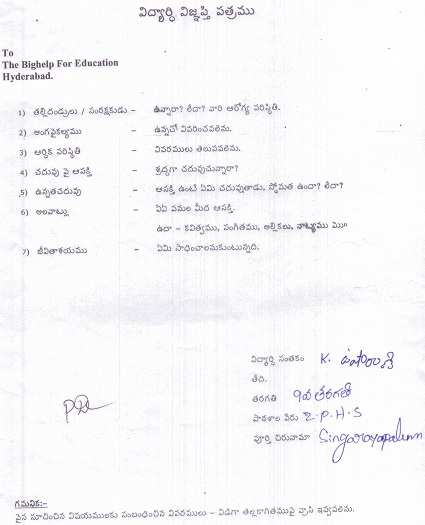 విద్యార్థి విజ్ఞప్తి పత్రము
To
The Bighelp For Education
Hyderabad.
1) తల్లిదండ్రులు / సంరక్షకుడు – ఉన్నారా? లేదా? వారి ఆరోగ్య పరిస్థితి.
2) అంగవైకల్యము – ఉన్నచో వివరించవలెను.
3) ఆర్థిక పరిస్థితి – వివరములు తెలుపవలెను.
4) చదువు పై ఆసక్తి – శ్రద్దగా చదువుచున్నారా?
5) ఉన్నతచదువు – ఆసక్తి ఉంటే ఏమి చదువుతాడు, స్తోమత ఉందా? లేదా?
6) అలవాట్లు – ఏఏ పనుల మీద ఆసక్తి.
ఉదా – కవిత్వము, సంగీతము, అల్లికలు, నాట్యము మొ॥
7) జీవితాశయము – ఏమి సాధించాలనుకుంటున్నది.
విద్యార్థి సంతకం K.
తేది.
తరగతి 9వ తరగతి
పాఠశాల పేరు Z.P.H.S
పూర్తి చిరునామా Singarayapalem
గమనిక:–
పైన సూచించిన విషయములకు సంబంధించిన వివరములు – విడిగా తెల్లకాగితముపై వ్రాసి ఇవ్వవలెను.